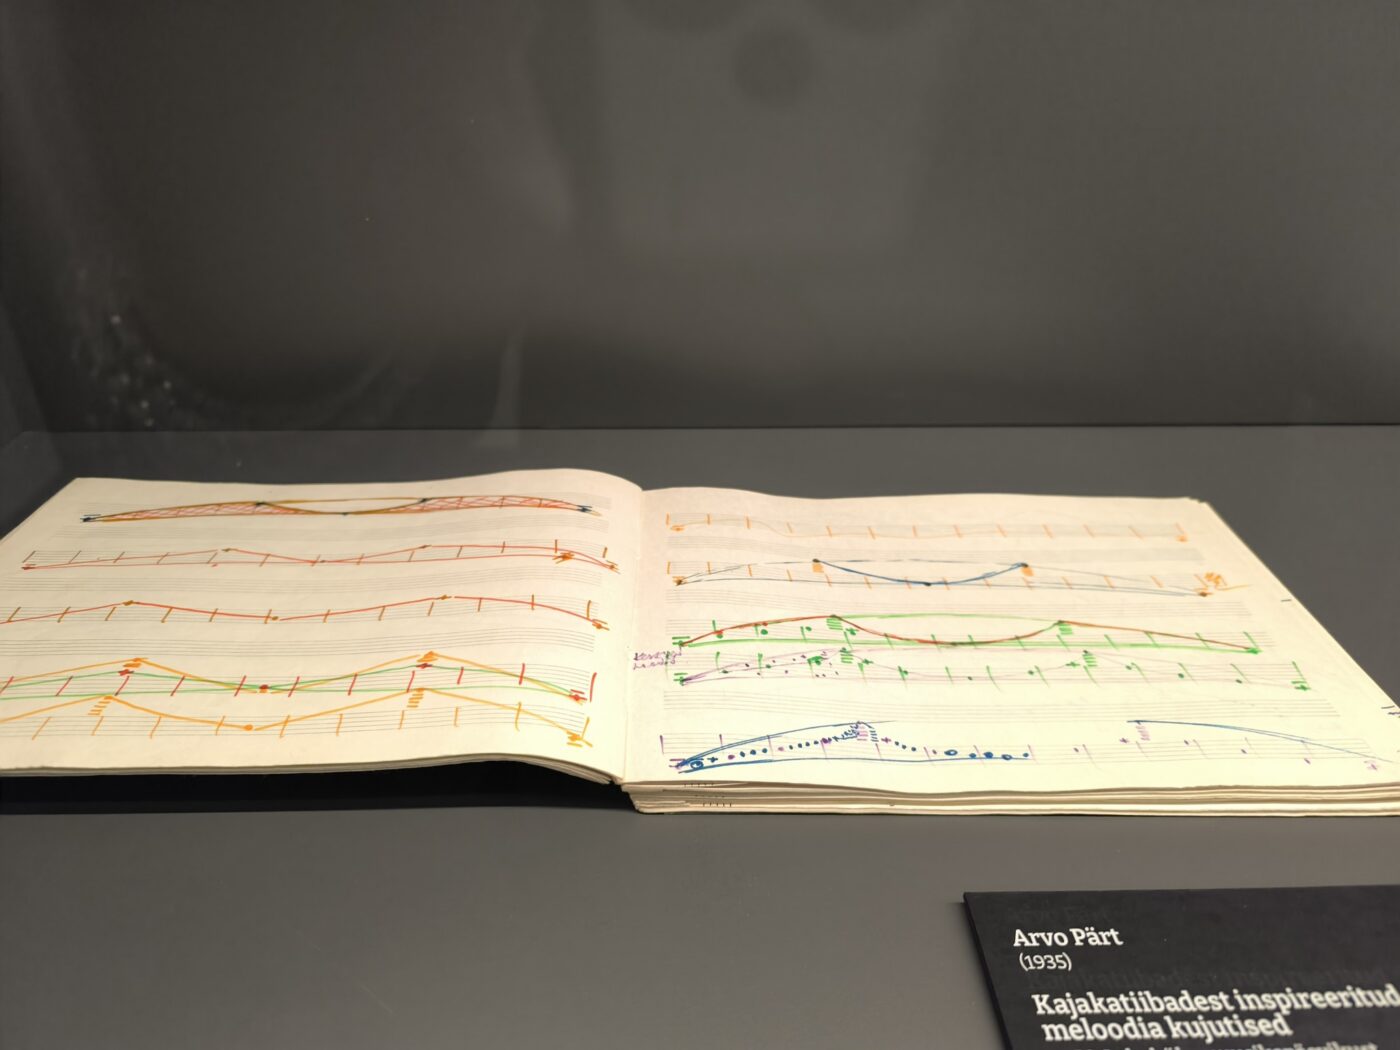 Arvo Pärt
(1935)
Kajakatiibadest inspireeritud
meloodia kujutised